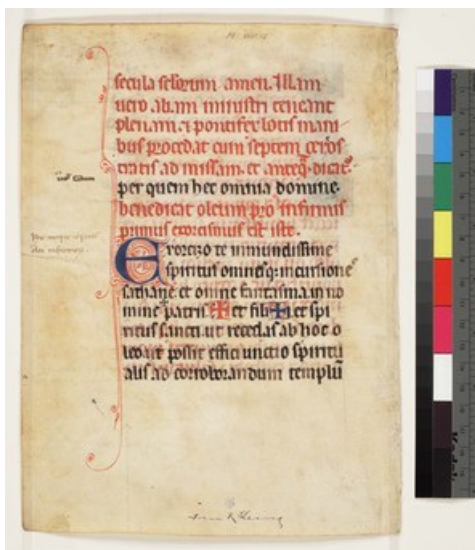 secula sclorum amen. Illam
uero ab.am ministri teneant
plenam. et pontifex lotis mani
bus procedat cum septem ceros
tratis ad missam. et anteqͣ dicat᷑
per quem hec omnia domine.
benedicat oleum pro infirmis
primus exorcismus est iste.
Exorcizo te inmundissime
spiritus omnisqꝫ incursione
sathane. et omne fantasma. in no
mine patris ✠ et filii ✠ et spi
ritus sancti. ut recedas ab hoc o
leo ut possit effici unctio spiritu
alis ad corroborandum templū
Kodak